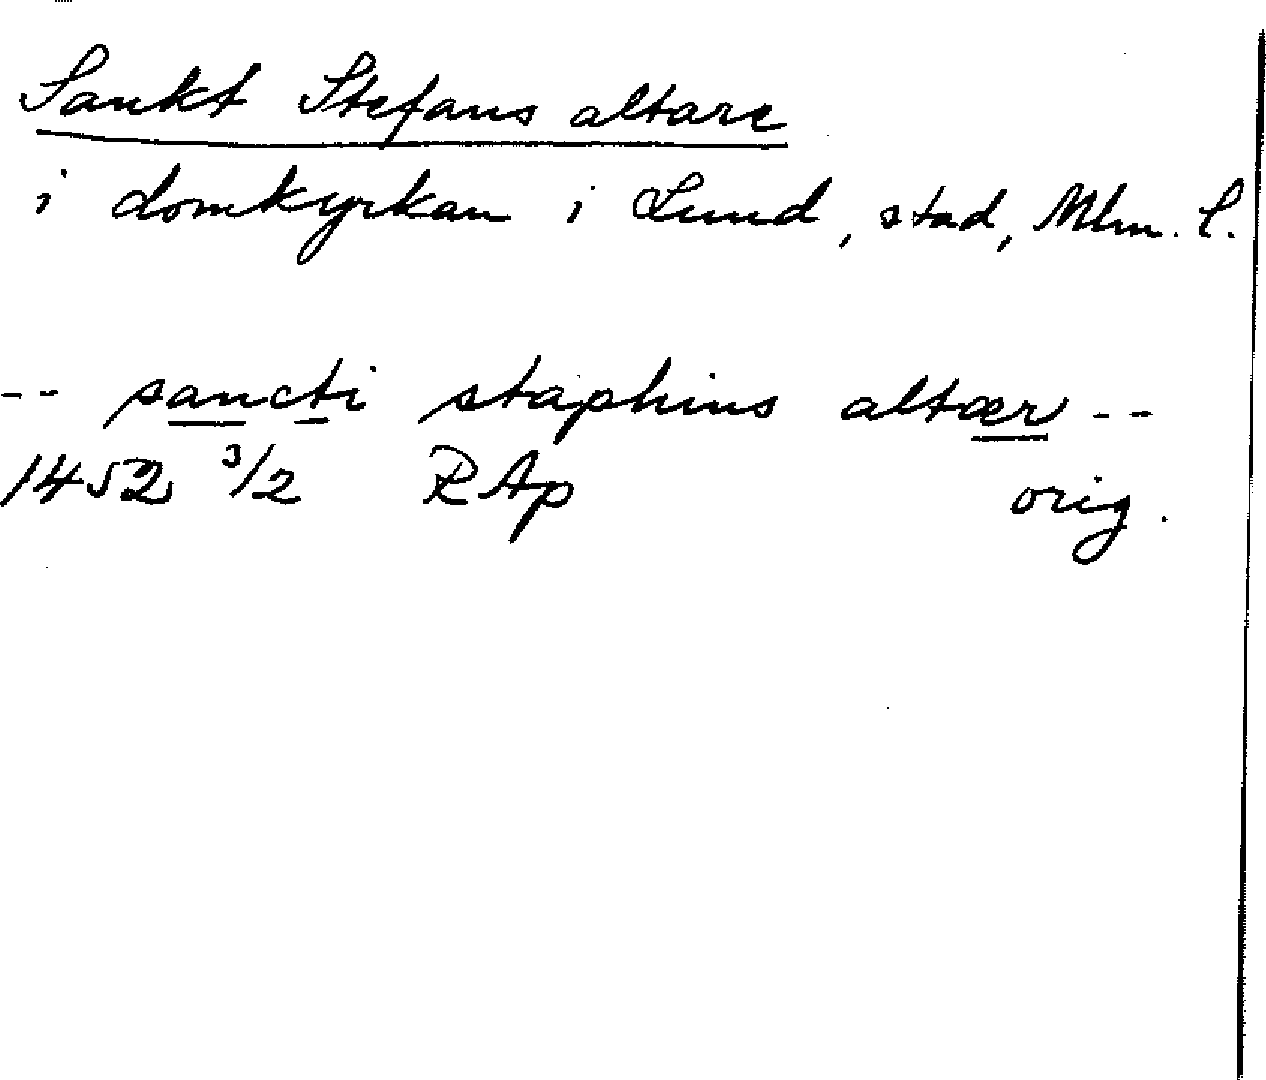 Sankt Stefans altare
i domkyrkan i Lund, stad, Mlm. l.
-- sancti staphins altær --
1452 3/2 RAp orig.